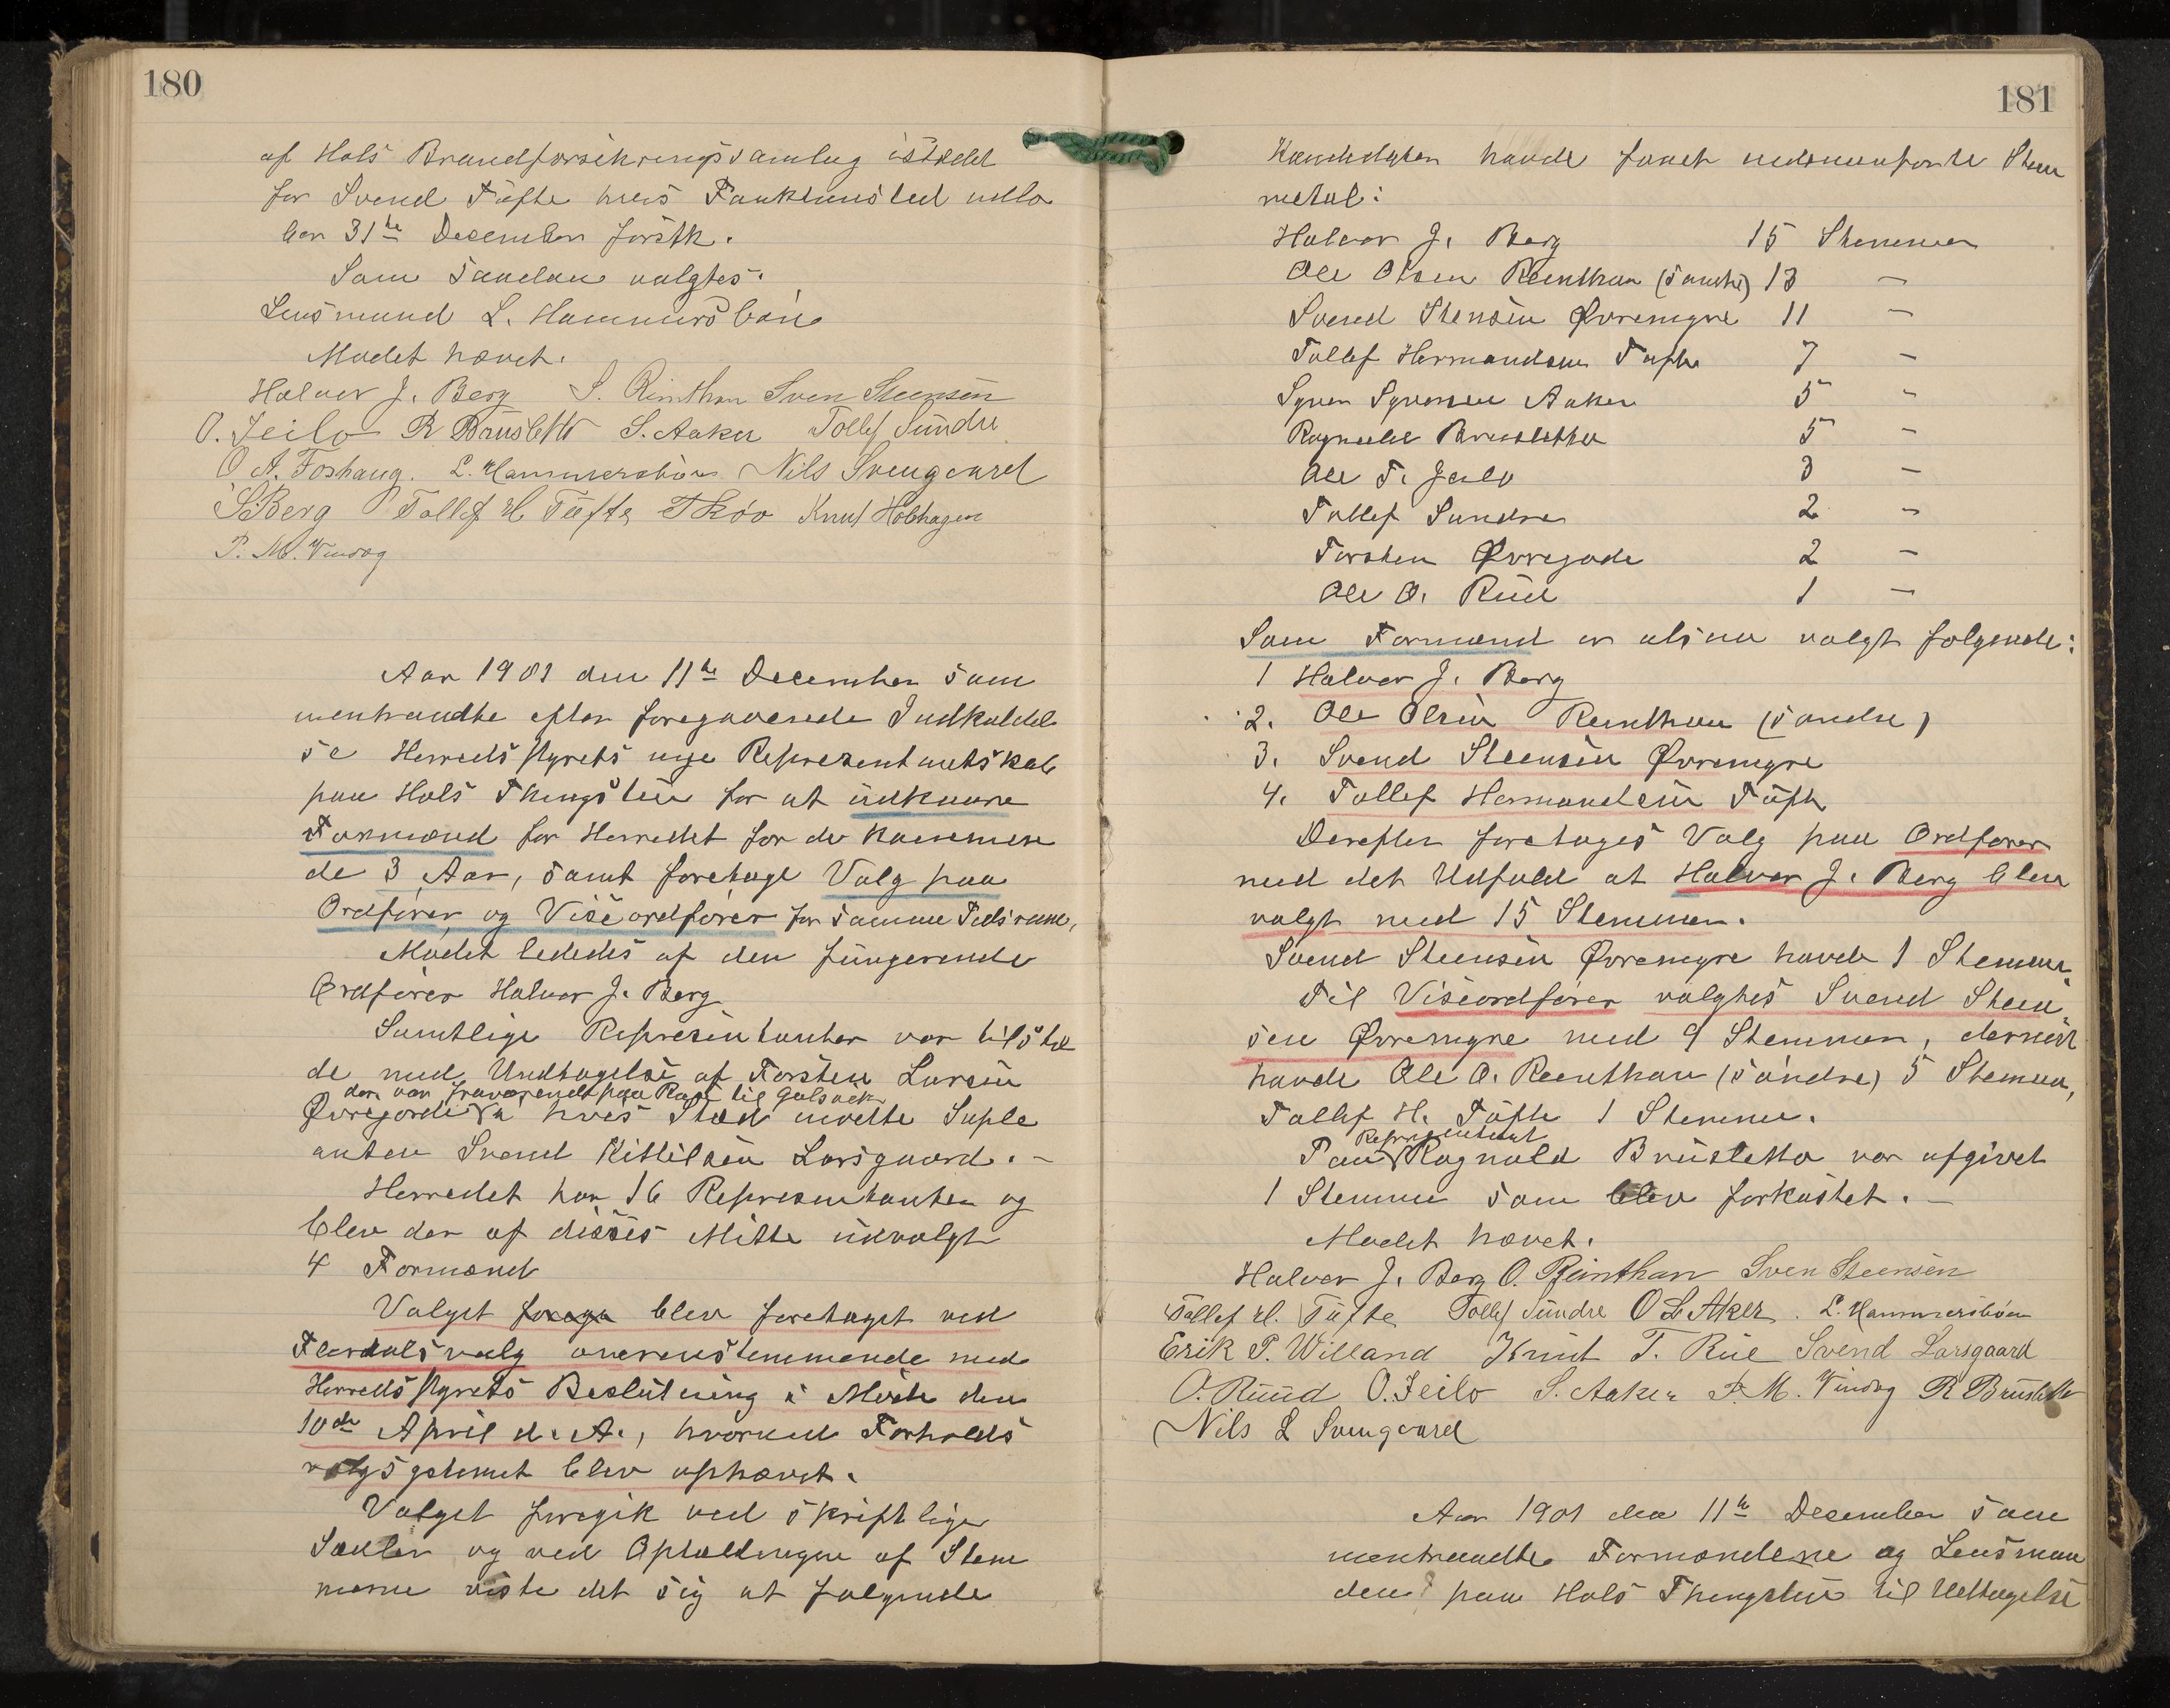 180
af Hols Brandforsikringsvamlag istedet
for Svend Tufte hvis Funktionsted udlø
ber 31te December førstk.
Som saadan valgtes:
Lensmand L. Hammersbøen
Mødet hævet.
Halvor J. Berg S. Rinthan Sven Steensen
O. Jeilo R Brusletto S. Aaker Tollef Sundre
O A. Foshaug. L. Hammersbøen Nils Sveingaard
S. Berg Tollef H Tufte T Røo Knut Holhagen
P. M. Vindeg
Aar 1901 den 11te December sam
mentraadte efter foregaaende Indkaldel
se Herredsstyrets nye Representantskab
paa Hols Thingstue for at udkaare
Formænd for Herredet for de kommen
de 3 Aar, samt foretage Valg paa
Ordfører og Viseordfører for samme Tidsrum,
Mødet lededes af den fungerende
Ordfører Halvor J. Berg
Samtlige Represintanter var tilstæ
de med Undtagelse af Torsten Larsen
der var fraværende paa Reise til Gulsvik
Øvregorde hvis Sted mødte Suple
anten Svend Kittilsen Larsgaard. –
Herredet har 16 Represintanter og
blev der af disses Mitte udvalgt
4 Formænd
Valget forega blev foretaget ved
Flertalsvalg overenstemmende med
Herredsstyrets Beslutning i Møde den
10de April d. A., hvorved Forholds
valgsystemet blev ophævet.
Valget foregik ved skriftlige
Sedler og ved Optællingen af Stem
merne viste det sig at følgende
181
Kandidater havde faaet nedenanførte Stem
metal:
Halvor J. Berg 15 Stemmer
Ole Olsen Reinthan (søndre) 13 –
Svend Stensen Øvremyre 11 –
Tollef Hermandsen Tufte 7 –
Syver Syversen Aaker 5 –
Ragnvald Brusletto 5 –
Ole T. Jeilo 3 –
Tollef Sundre 2 –
Torsten Øvregorde 2 –
Ole O. Rud 1 –
Som Formænd er altsaa valgt følgende:
1 Halvor J. Berg
2. Ole Olsen Reinthan (søndre)
3. Svend Steensen Øvremyre
4. Tollef Hermandsen Tufte
Derefter foretages Valg paa Ordfører
med det Udfald at Halvor J. Berg blev
valgt med 15 Stemmer.
Svend Steensen Øvremyre havde 1 Stemme
Til Viseordfører valgtes Svend Steen
sen Øvremyre med 9 Stemmer, dernest
havde Ole O. Reinthan (søndre) 5 Stemmer,
Tollef H. Tufte 1 Stemme.
Representant
Paa Ragnvald Brusletto var afgivet
1 Stemme som blev forkastet. –
Mødet hævet.
Halvor J. Berg O. Reinthan Sven Steensen
Tollef H. Tufte Tollef Sundre O L Aker. L. Hammersbøen
Erik P. Willand Knut T. Rue Svend Larsgaard
O. Ruud O. Jeilo S. Aaker P. M. Vindeg R Brusletto
Nils L Sveingaard
Aar 1901 den 11te December sam
mentraadte Formændene og Lensman
den paa Hols Thingstue til Udtagelse